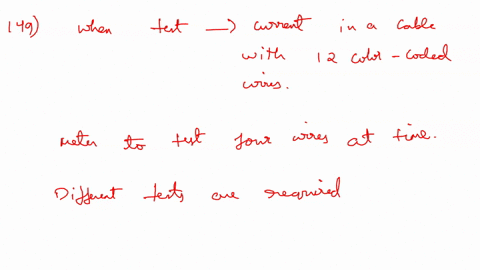 149) when test → current in a cable
with 12 color-coded
wires.
meter to test four wires at time.
Different tests are required